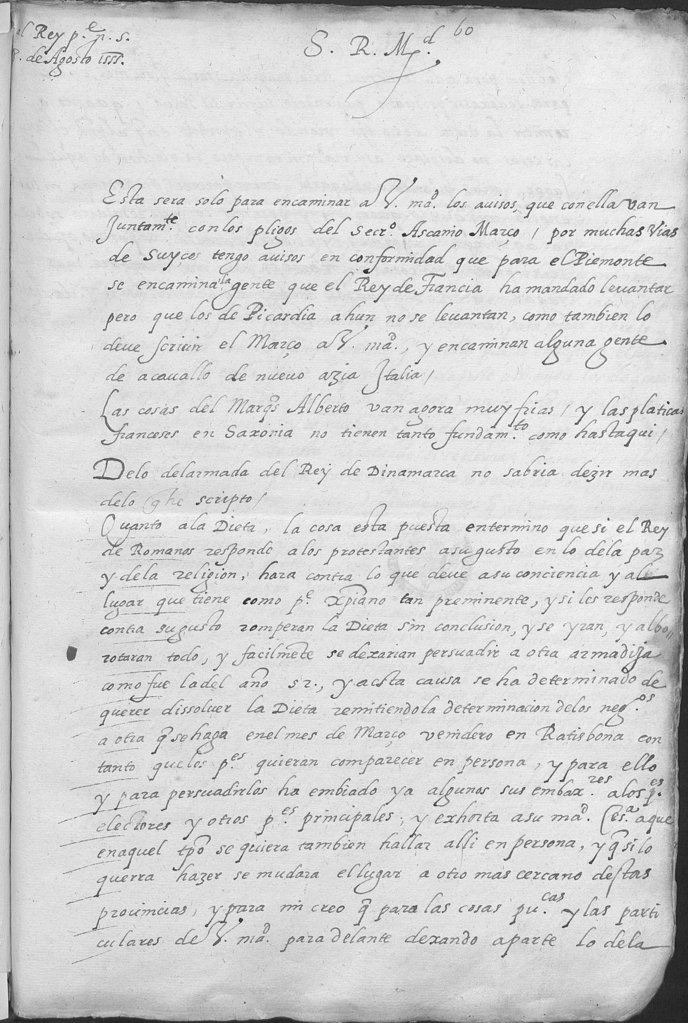 el Rey p.e n. s.
de Agosto 1555.
60
S. R. M.d
Esta sera solo para encaminar a V. mad. los avisos, que con ella van
Juntam.te con los pligos del Secr.o Ascanio Março / por muchas Vias
de Suyços tengo avisos en conformidad que para el Piemonte
se encamina la gente que el Rey de Francia ha mandado levantar
pero que los de Picardia ahun no se levantan, como tambien lo
deve scrivir el Março a V. mad., y encaminan alguna gente
de a cavallo de nuevo azia Italia /
Las cosas del Marq.s Alberto van agora muy frias / y las platicas
franceses en Saxonia no tienen tanto fundam.to como hasta qui /
Delo del armada del Rey de Dinamarca no sabria dezir mas
delo q he scripto /
Quanto ala Dieta, la cosa esta puesta en termino que si el Rey
de Romanos responde a los protestantes a su gusto en lo dela paz
y dela religion, hara contra lo que deve a su conciencia y al
lugar que tiene como p.e xpiano tan preminente, y si les responde
contra su gusto romperan la Dieta sin conclusion, y se yran, y albo
rotaran todo, y facilmete se dexarian persuadir a otra armadija
como fue la del año 52., y a esta causa se ha determinado de
querer dissolver la Dieta remitiendo la determinacion delos neg.os
a otra q se haga en el mes de Março venidero en Ratisbona con
tanto que los p.es quieran comparecer en persona, y para ello
y para persuadirlos ha embiado ya algunos sus embax.res a los p.es
electores y otros p.es principales, y exhorta a su mad. Ces.a a que
en aquel tpo se quiera tambien hallar alli en persona, y q si lo
querra hazer se mudara el lugar a otro mas cercano destas
provincias, y para mi creo q para las cosas pu.cas y las parti
culares de V. mad. para delante dexando a parte lo dela